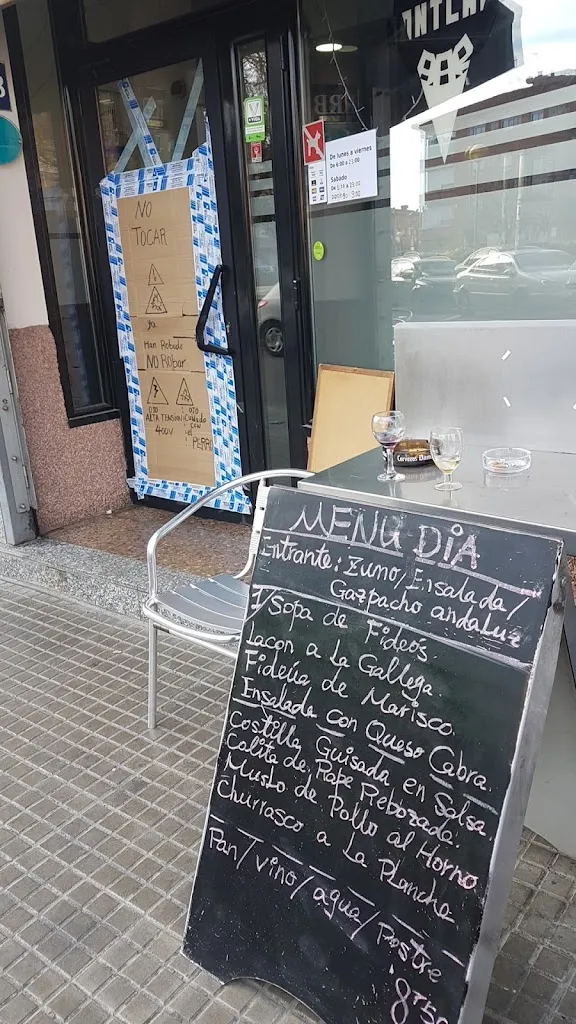 NO
TOCAR
ya
Han Robado
NO RObar
ojo
ALTA TENSION
400V
ojo
Cuidado
con
el
PERRO
De lunes a viernes
Sábado
Cervezas Dam
MENU DIA
Entrante: Zumo/Ensalada/
Gazpacho andaluz
1/Sopa de Fideos
Lacon a La Gallega.
Fideúa de Marisco.
Ensalada con Queso Cabra.
Costilla Guisada en Salsa.
Colita de Rape Rebozada.
Muslo de Pollo al Horno
Churrasco a La Plancha
Pan/vino/agua/Postre
8'50